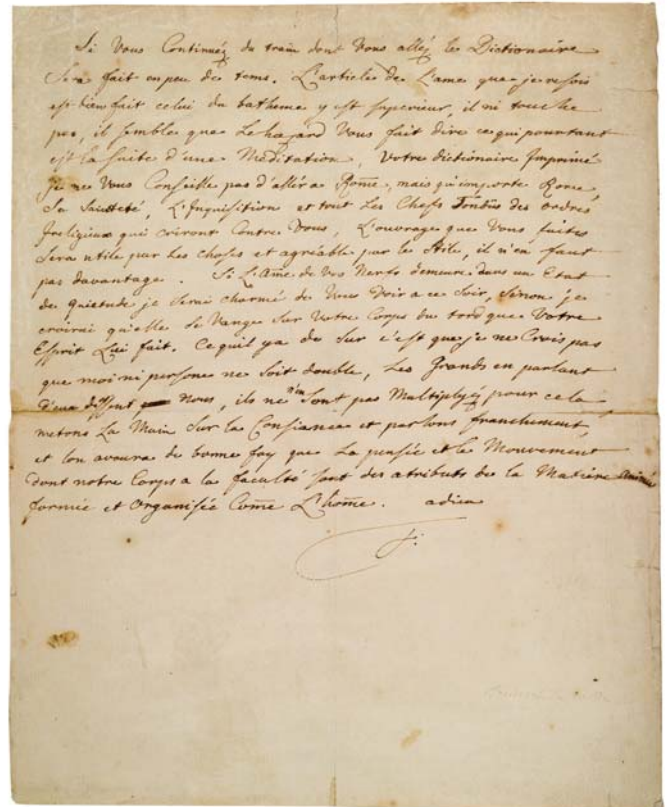 Si Vous Continuéz du train dont Vous alléz le Dictionaire
Sera fait en peu de tems. L'article de L'ame que je resois
est bien fait celui du batheme y est superieur, il ni touche
pas, il semble que Le hazard Vous fait dire ce qui pourtant
est la suite d'une Meditation, Votre dictionaire Imprimé
je ne Vous Conseille pas d'allér a Rome, mais qu'importe Rome,
Sa Sainteté, L'Inquisition et tout Les Chefs Tondus des ordres
Irreligieux qui criront Contre Vous, L'ouvrage que Vous faites
Sera utile par Les choses et agréable par le Stile, il n'en faut
pas davantage. Si L'Ame de Vos Nerfs demeure dans un Etat
de quietude je Serai charmé de Vous Voir a ce Soir, Sinon je
croirai qu'elle Se Vange Sur Votre Corps du tord que Votre
Esprit Lui fait. Ce qu'il y a de Sur c'est que je ne Crois pas
que moi ni persone ne Soit double, Les Grands en parlant
d'eux disent Nous, ils ne n'en Sont pas Multipliéz pour cela
metons La Main Sur la Consiance et parlons franchement,
et lon avoura de bonne foy que La pensée et le Mouvement
dont notre Corps a la faculté sont des atributs de la Matière Animée
formée et Organisée Come L'home. adieu
F: